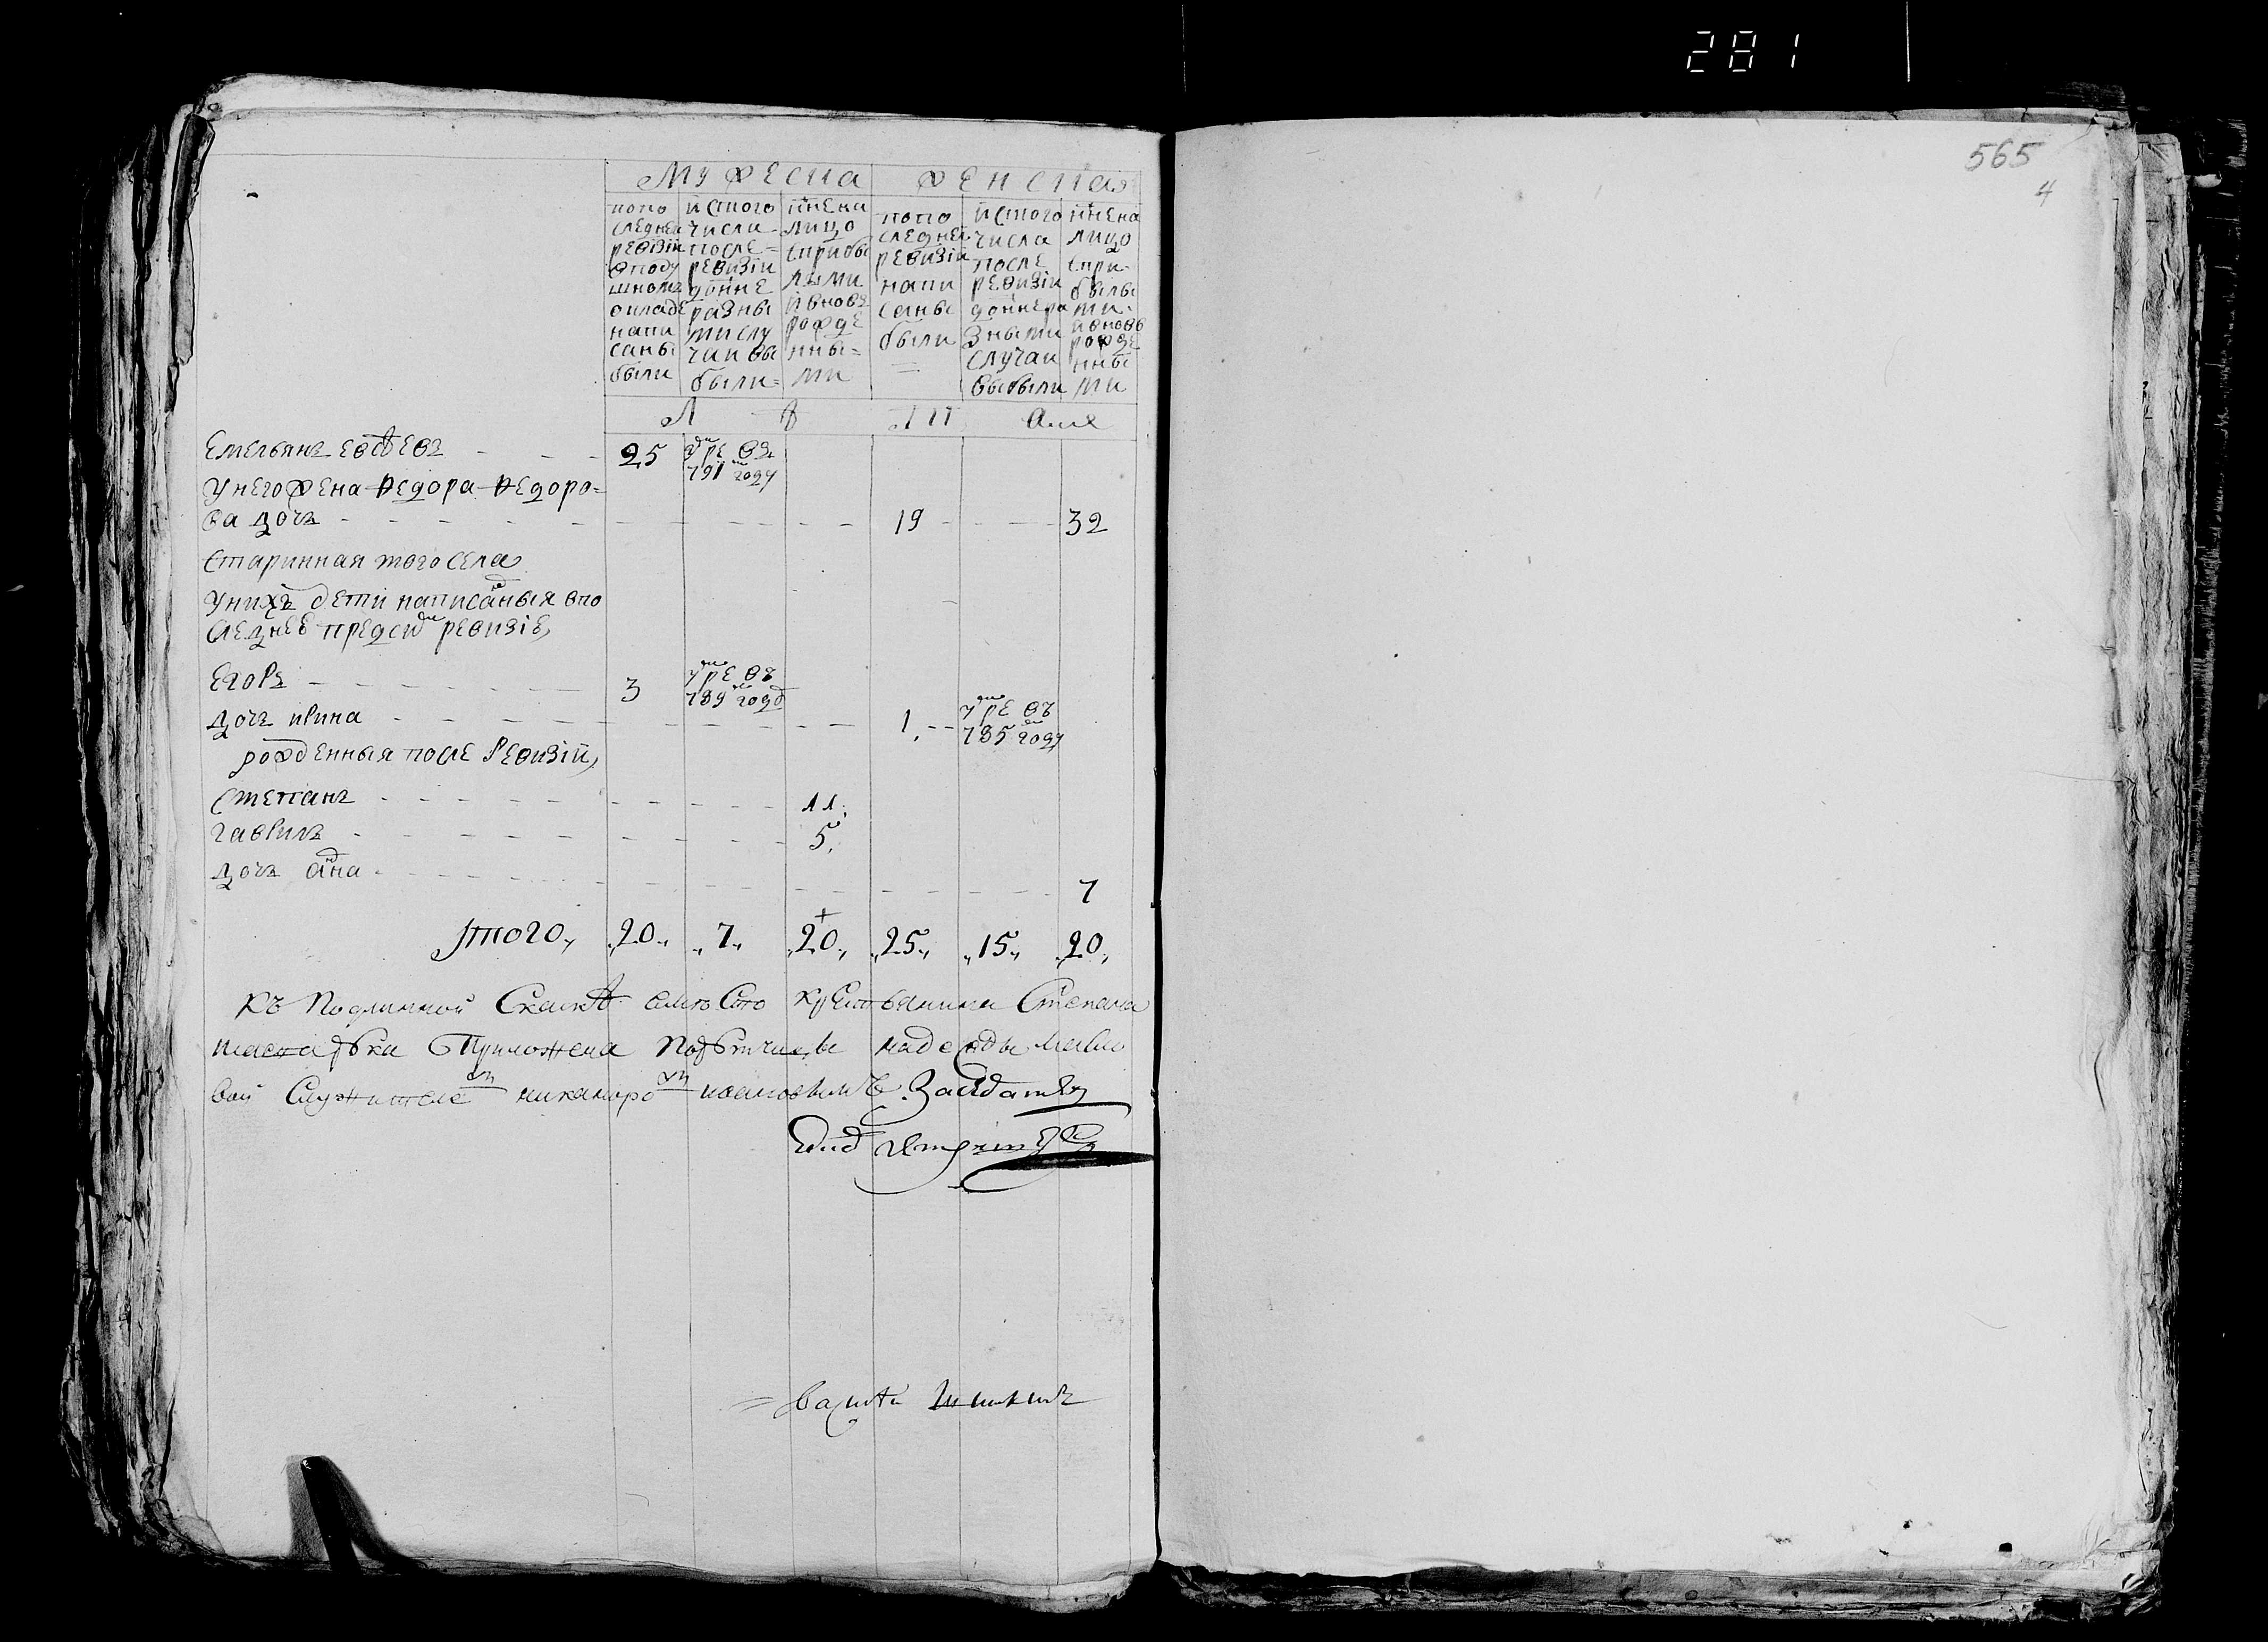 281
565
4
Мужеска
женская
попо
следней
ревизiи
вподу
шномъ
окладе
напи
саны
были
истого
числа
после=
ревизiи
доныне
разны
ми слу
чаи вы
были=
ныне на
лицо
сприбы
лыми
и вновь
рожде
нны=
ми
попо
следней
ревизiи
напи
саны
были
=
истого
числа
после
ревизiи
доныне ра
зными
случаи
выбыли
ныне на
лицо
спри-
былы
ми-
и вновь
рожде
нны
ми
Л ѣ т а
Емельянъ Евсѣевъ - - - 25 умре въ
791м году
унего жена Федора Федоро=
ва дочь - - - 19 - - - 32
Старинная того села
унихъ дети написаныя впо
следнеѣ предсим ревизiе,
Егоръ - - - 3 умре въ
789м году
дочь ирина - - - 1. - - умре въ
785м году
рожденныя после Ревизiи,
Степанъ - - - 11.
гаврилъ - - - 5.
дочь анна - - - 7
Итого, 20., 7., 20., 25., 15., 20,
Къ Подлинной Скаскѣ вместо крестьянина Степана
Приложена
Служителемъ никаноромъ ивановымъ.